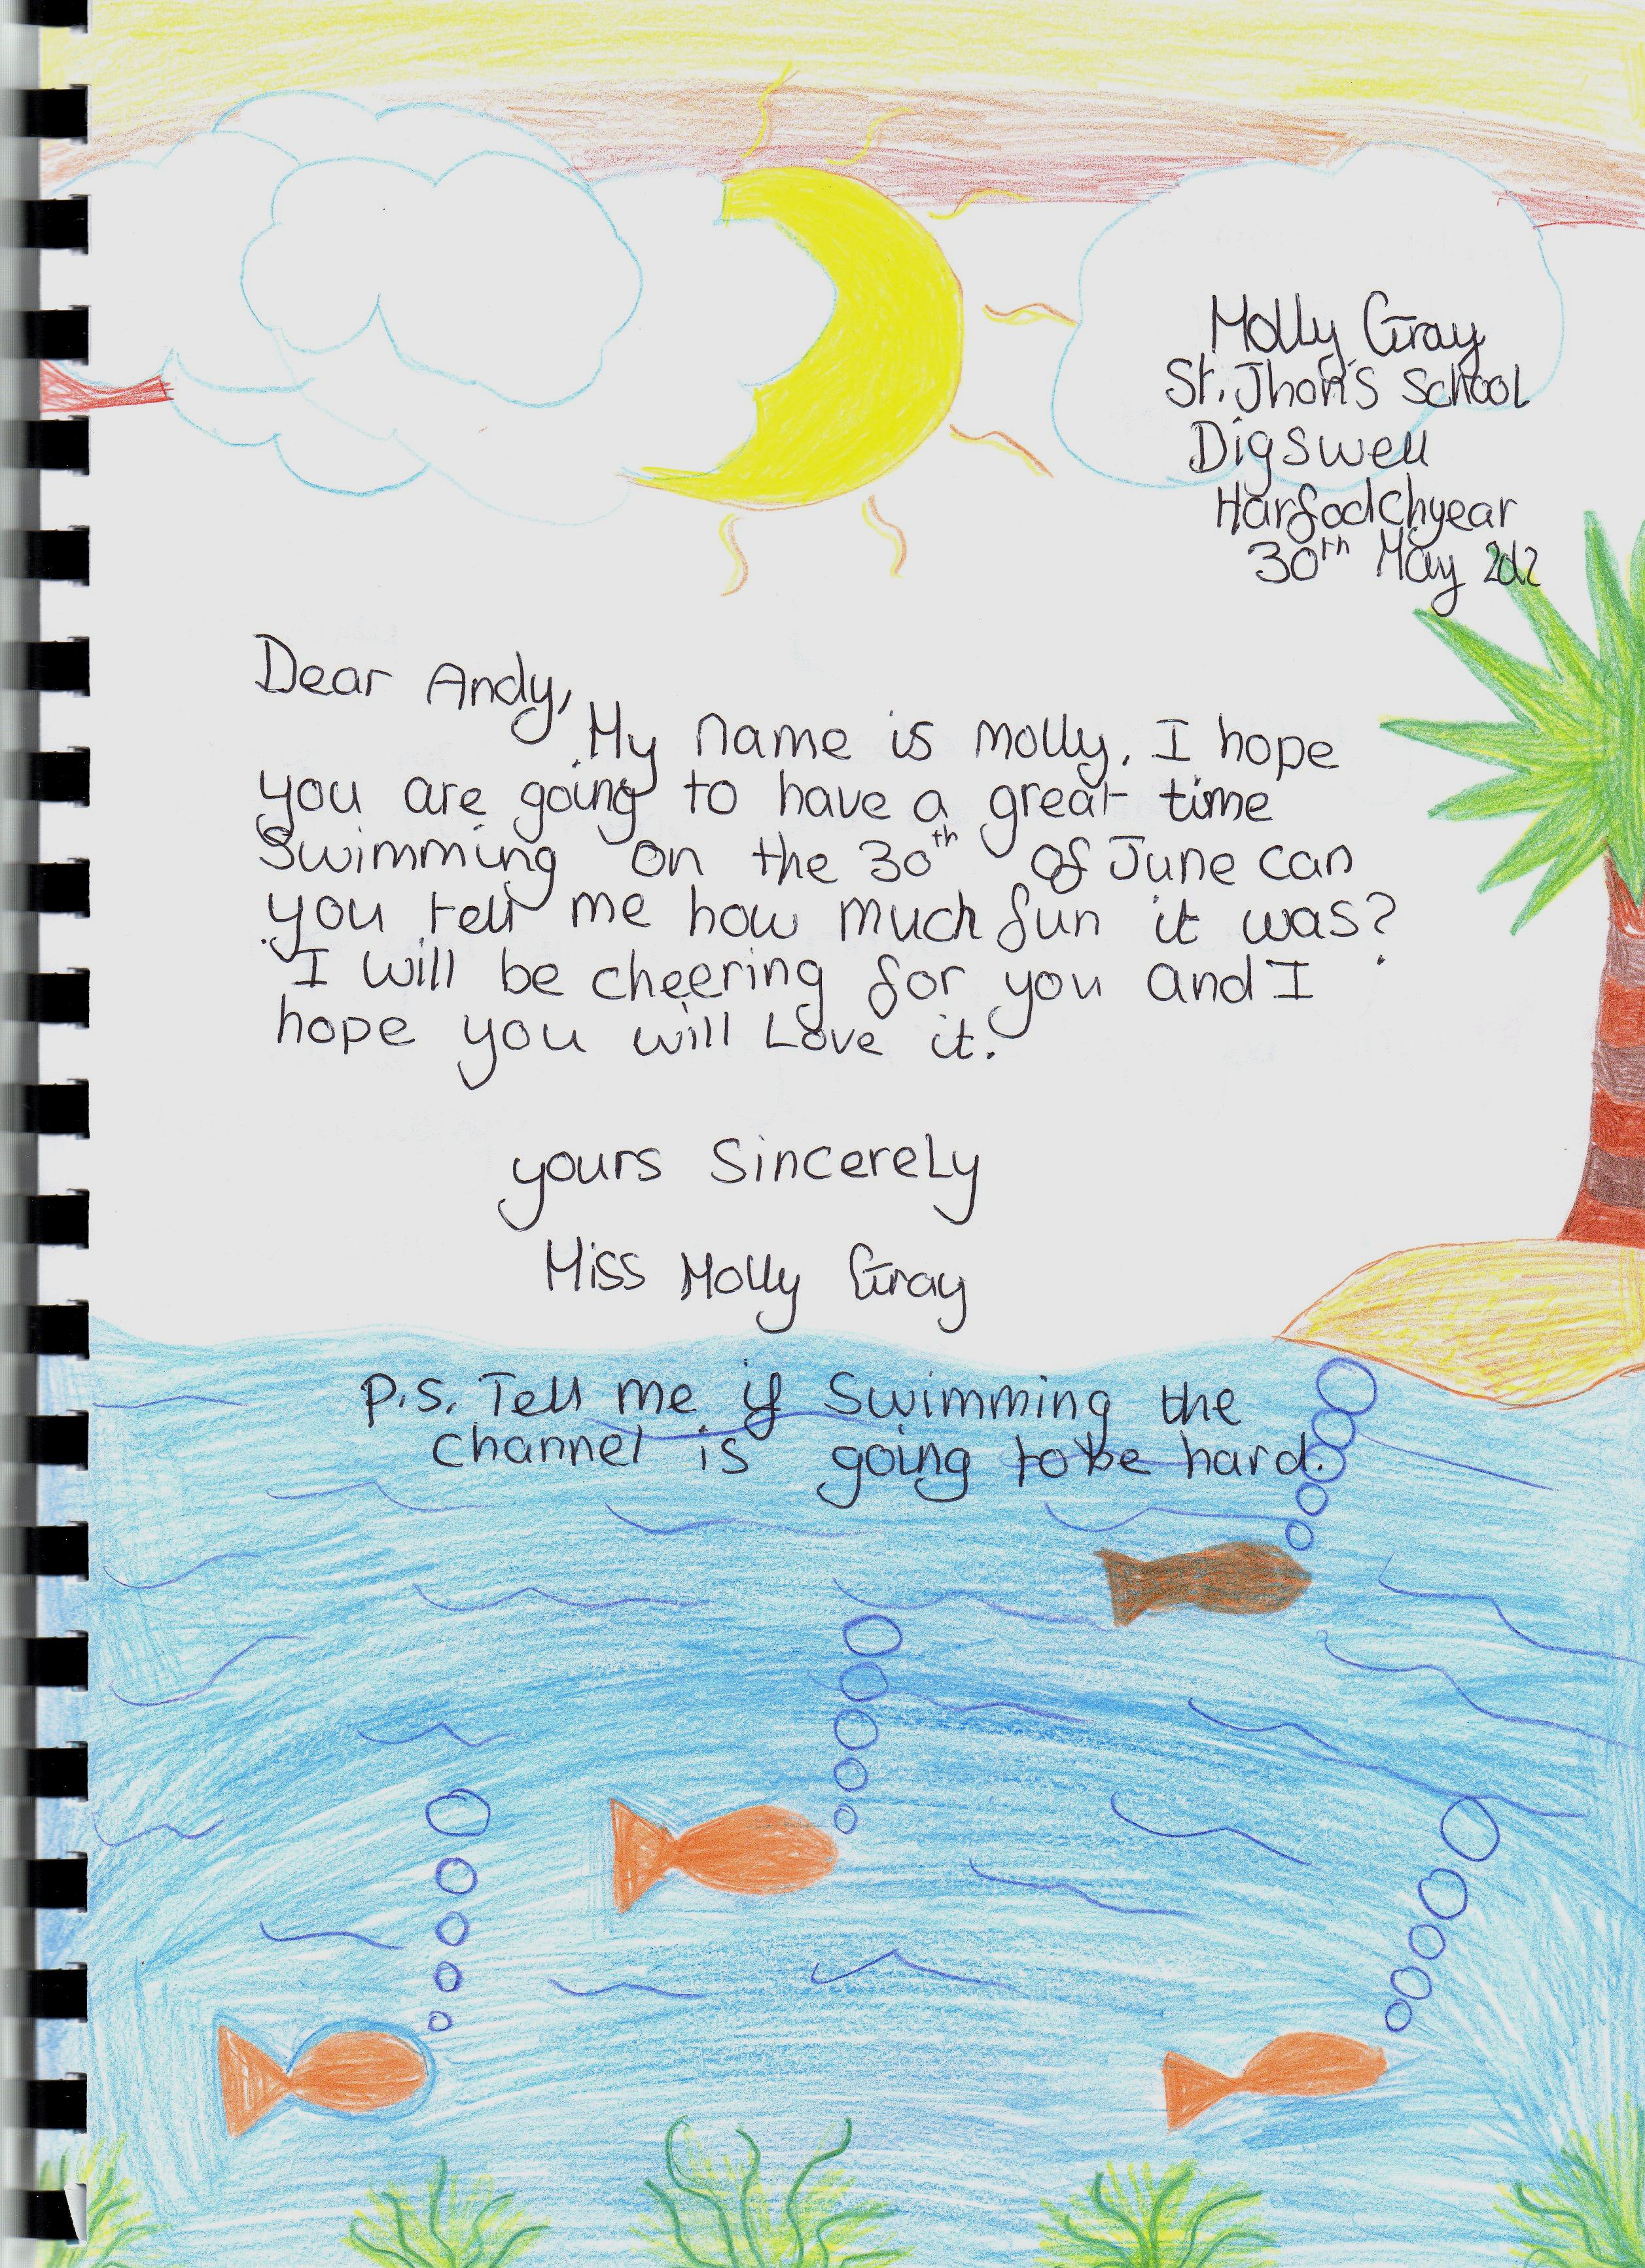 Molly Gray
St. Jhon's School
Digswell
Harfodchyear
30th May
Dear Andy,
My name is Molly. I hope
you are going to have a great time
Swimming on the 30th of June can
you tell me how much fun it was?
I will be cheering for you and I
hope you will Love it.
yours Sincerely
Miss Molly Gray
P.S. Tell me if Swimming the
channel is going to be hard.